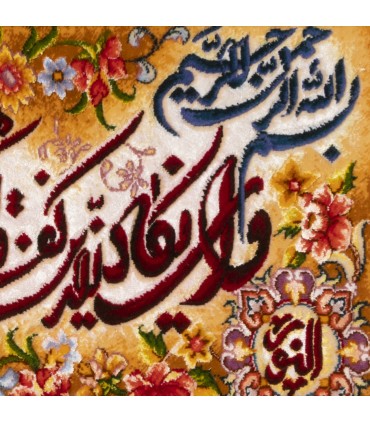 بسم الله الرحمن الرحیم
وان یکاد الذین
النور